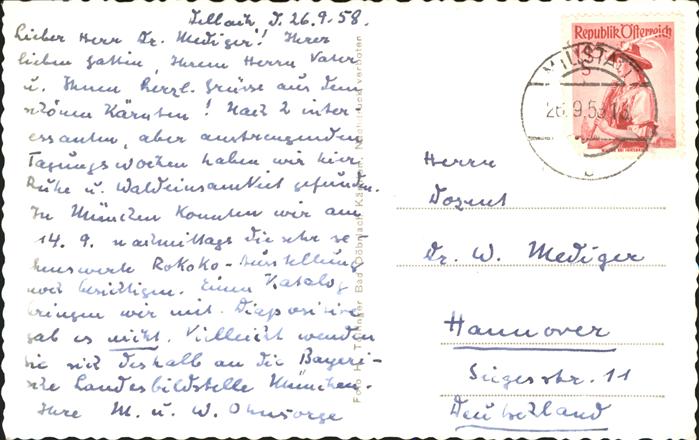 Dellach, d. 26.9.58.
Lieber Herr Dr. Mediger! Ihrer
lieben Gattin, Ihrem Herrn Vater
u. Ihnen herzl. Grüsse aus dem
schönen Kärnten! Nach 2 inter
essanten, aber anstrengenden
Tagungswochen haben wir hier
Ruhe u. Waldeinsamkeit gefunden.
In München konnten wir am
14. 9. nachmittags die sehr se-
henswerte Rokoko-Ausstellung
noch besichtigen. Einen Katalog
bringen wir mit. Diapositive
gab es nicht. Vielleicht wenden
Sie sich deshalb an die Bayeri-
sche Landesbildstelle München.
Ihre M. u. W. Ohnsorge
Foto H. Döbriach, Kärnten. verboten
Republik Österreich
MILLSTATT
26.9.58
Herrn
Dozent
Dr. W. Mediger
Hannover
Siegesstr. 11
Deutschland